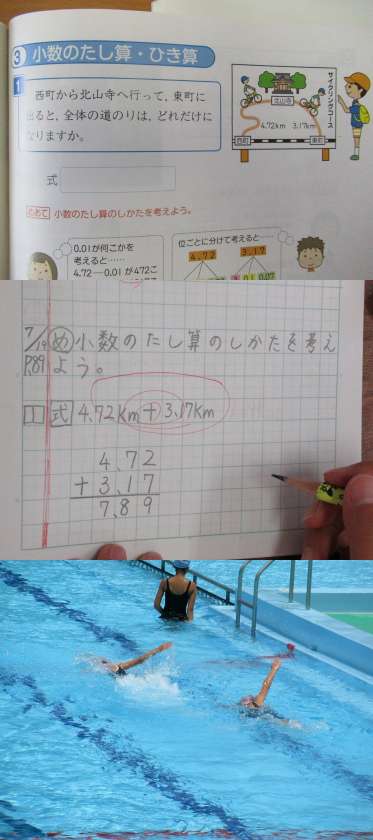 3 小数のたし算・ひき算
1
西町から北山寺へ行って、東町に
出ると、全体の道のりは、どれだけに
なりますか。
サイクリングコース
北山寺
4.72km 3.17km
西町 東町
式
めあて 小数のたし算のしかたを考えよう。
0.01が何こかを
考えると……
4.72―0.01が472こ
位ごとに分けて考えると
4.72 3.17
0.1 0.07
7/19 め 小数のたし算のしかたを考え
P.89 よう。
1 式 4.72Km+3.17Km
4.72
+3.17
7.89